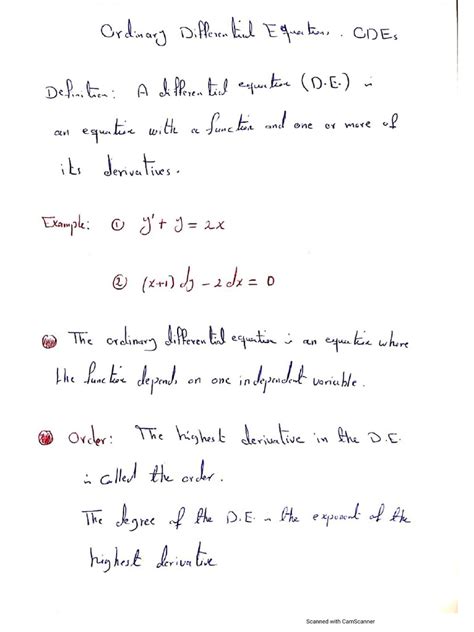 Ordinary Differential Equations . ODEs
Definition: A differential equation (D.E.) is
an equation with a function and one or more of
its derivatives.
Example: ① y' + y = 2x
② (x+1) dy - 2 dx = 0
The ordinary differential equation is an equation where
the function depends on one independent variable.
Order: The highest derivative in the D.E.
is called the order.
The degree of the D.E. is the exponent of the
highest derivative
Scanned with CamScanner